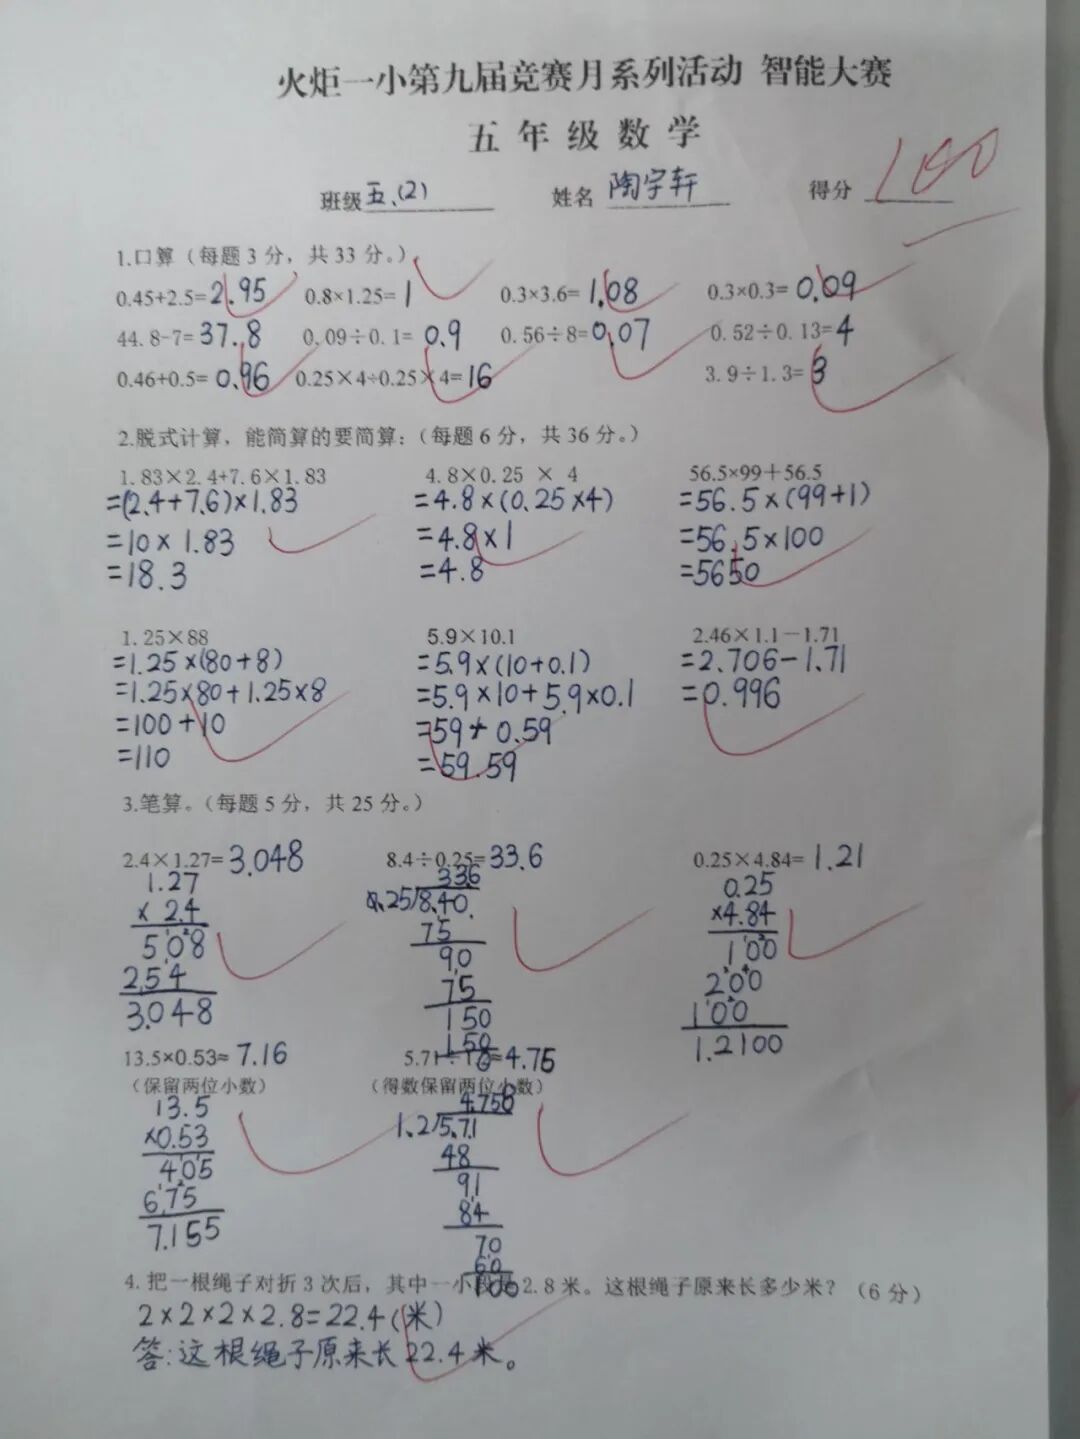 火炬一小第九届竞赛月系列活动 智能大赛
五 年 级 数 学
班级 五.(2) 姓名 陶宇轩 得分 100
1.口算（每题 3 分，共 33 分。）
0.45+2.5= 2.95 0.8×1.25= 1 0.3×3.6= 1.08 0.3×0.3= 0.09
44.8-7= 37.8 0.09÷0.1= 0.9 0.56÷8= 0.07 0.52÷0.13= 4
0.46+0.5= 0.96 0.25×4÷0.25×4= 16 3.9÷1.3= 3
2.脱式计算，能简算的要简算：（每题 6 分，共 36 分。）
1.83×2.4+7.6×1.83 4.8×0.25 × 4 56.5×99＋56.5
=(2.4+7.6)×1.83 =4.8×(0.25×4) =56.5×(99+1)
=10×1.83 =4.8×1 =56.5×100
=18.3 =4.8 =5650
1.25×88 5.9×10.1 2.46×1.1－1.71
=1.25×(80+8) =5.9×(10+0.1) =2.706-1.71
=1.25×80+1.25×8 =5.9×10+5.9×0.1 =0.996
=100+10 =59+0.59
=110 =59.59
3.笔算。（每题 5 分，共 25 分。）
2.4×1.27= 3.048 8.4÷0.25= 33.6 0.25×4.84= 1.21
1.27 33.6 0.25
×2.4 0.25/8.40. ×4.84
508 75 100
254 90 200
3.048 75 100
150 1.2100
150
13.5×0.53≈ 7.16 5.71÷1.2≈ 4.75
（保留两位小数） （得数保留两位小数）
13.5 4.758
×0.53 1.2/5.71
405 48
675 91
7.155 84
70
60
100
4.把一根绳子对折 3 次后，其中一小段是 2.8 米。这根绳子原来长多少米？（6 分）
2×2×2×2.8=22.4(米)
答:这根绳子原来长22.4米。